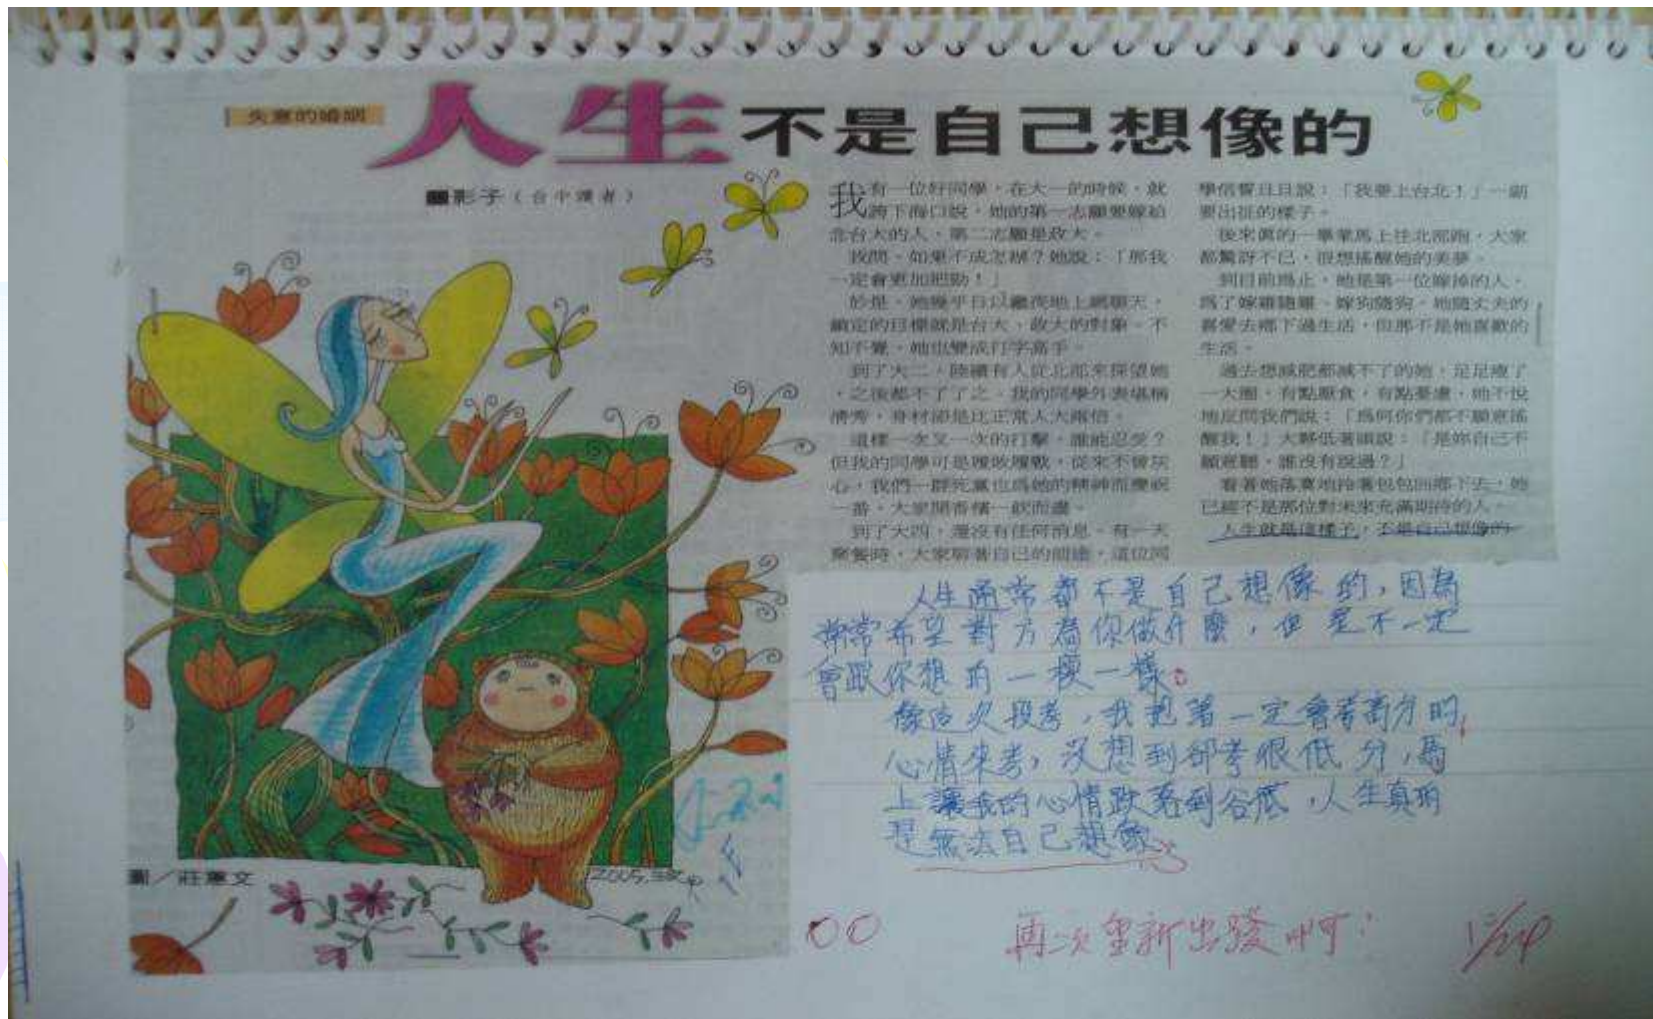 失意的婚姻
人生不是自己想像的
■影子（台中讀者）
我有一位好同學，在大一的時候，就
誇下海口說，她的第一志願要嫁給
念台大的人，第二志願是政大。
我問，如果不成怎辦？她說：「那我
一定會更加把勁！」
於是，她幾乎日以繼夜地上網聊天，
鎖定的目標就是台大、政大的對象。不
知不覺，她也變成打字高手。
到了大二，陸續有人從北部來探望她
，之後都不了了之。我的同學外表堪稱
清秀，身材卻是比正常人大兩倍。
這樣一次又一次的打擊，誰能忍受？
但我的同學可是屢敗屢戰，從來不曾灰
心，我們一群死黨也為她的精神而慶祝
一番，大家開香檳一飲而盡。
到了大四，還沒有任何消息。有一天
聚餐時，大家聊著自己的前途，這位同
學信誓旦旦說：「我要上台北！」一副
要出征的樣子。
後來真的一畢業馬上往北部跑，大家
都驚訝不已，很想搖醒她的美夢。
到目前為止，她是第一位嫁掉的人，
為了嫁雞隨雞、嫁狗隨狗，她隨丈夫的
喜愛去鄉下過生活，但那不是她喜歡的
生活。
過去想減肥都減不了的她，足足瘦了
一大圈，有點厭食，有點憂慮，她不悅
地反問我們說：「為何你們都不願意搖
醒我！」大夥低著頭說：「是妳自己不
願意聽，誰沒有說過？」
看著她落寞地拎著包包回鄉下去，她
已經不是那位對未來充滿期待的人。
人生就是這樣子，不是自己想像的。
人生通常都不是自己想像的，因為
常希望對方為你做什麼，但是不一定
會跟你想的一模一樣。
像這次段考，我抱著一定會考高分的
心情來考，沒想到卻考很低分，馬
上讓我的心情跌落到谷底，人生真的
是無法自己想像。
圖／莊惠文
2005.
再次重新出發啊！